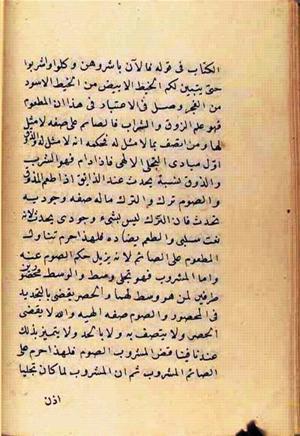 الكتاب في قوله فالآن باشروهن وكلوا واشربوا
حتى يتبين لكم الخيط الابيض من الخيط الاسود
من الفجر وصل في الاعتبار في هذا ان المطعوم
فهو علم الذوق والشراب فالصائم على صفة لا مثل
لها ومن اتصف بما لا مثل له فحكمه انه لا مثل له والذوق
اول مبادي التجلي الالهي فاذا دام فهو الشرب
والذوق نسبة يحدث عند الذايق اذا طعم المذوق
والصوم ترك والترك ماله صفة وجودية
تحدث فان الترك ليس بشيء وجودي يحدث لانه
نعت سلبي والطعم يضاده فلهذا حرم تناول
المطعوم على الصائم لانه يزيل حكم الصوم عنه
واما المشروب فهو تجلي وسط والوسط محصور بين
طرفين لمن هو وسط لهما والحصر يقضي بالتحديد
في المحصور والصوم صفة الهية والله لا يقضي
الحصر ولا يتصف به ولا بالحد ولا يتميز بذلك
عندنا فيناقض المشروب الصوم فلهذا حرم على
الصائم المشروب ثم ان المشروب لما كان تجليا
اذن